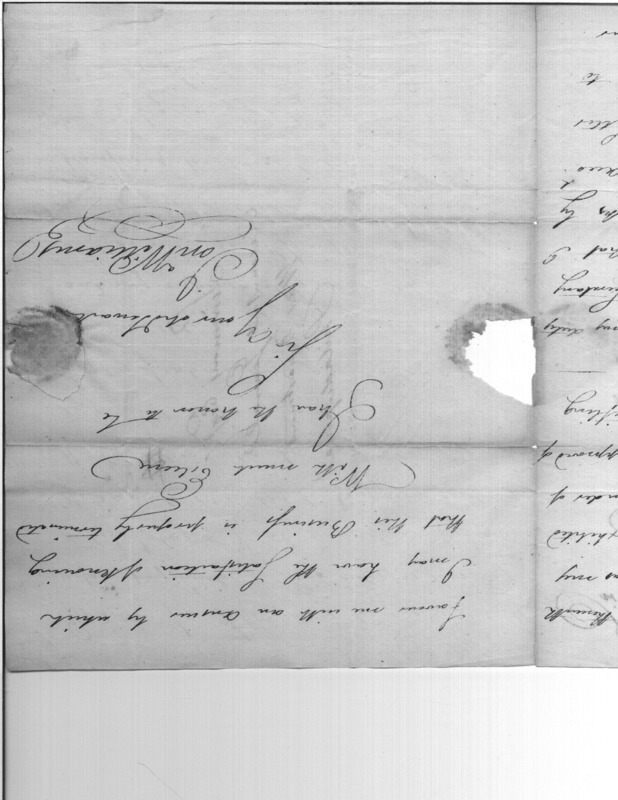 Herewith
as my
approved of
my duty
that I
by
to
favour me with an answer by which
I may have the Satisfaction of knowing
that this Business is properly terminated
With much Esteem
I have the honor to be
Sir
Your obt Servant
Jona Williams